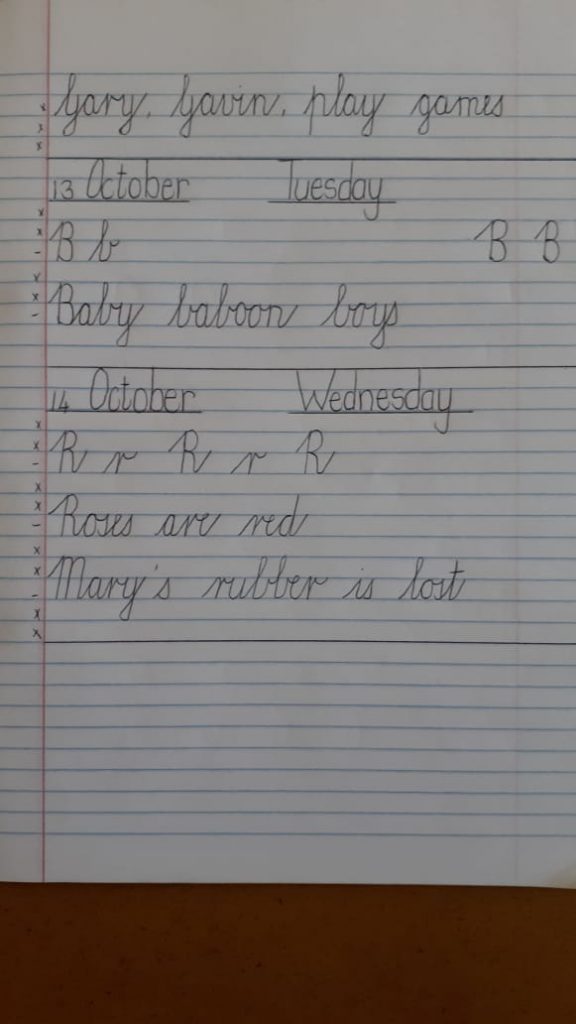 Gary, Gavin, play games
13 October Tuesday
B b B B
Baby baboon boys
14 October Wednesday
R r R r R
Roses are red
Mary's rubber is lost